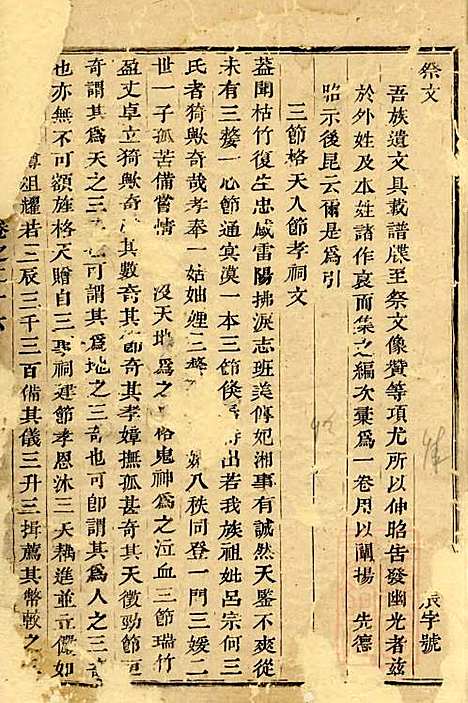 祭文
辰字號
吾族遺文具載譜牒至祭文像贊等項尤所以仲昭告發幽光者茲
於外姓及本姓諸作哀而集之編次彙為一卷用以闡揚 先德
昭示後昆云爾是為引
三節格天人節孝祠文
蓋聞枯竹復生忠感雷陽拂淚志班美傳妃湘事有誠然天鑒不爽從
未有三嫠一心節通冥漠一本三節倏 出若我族祖妣呂宗何三
氏者猗歟奇哉孝奉一姑妯娌三 八秩同登一門三媛二
世一子孤苦備嘗情 沒天地為之 鬼神為之泣血三節瑞竹
盈丈卓立猗歟奇 其數奇其節奇其孝嫜撫孤甚奇其天徵勁節
奇謂其為天之三 也可謂其為地之三奇也可卽謂其為人之三奇
也亦無不可額旌格天贈自三 祠建節孝恩沐三天爇進並立儼如
祖耀若三辰三千三百備其儀三升三揖薦其幣較之
卷之